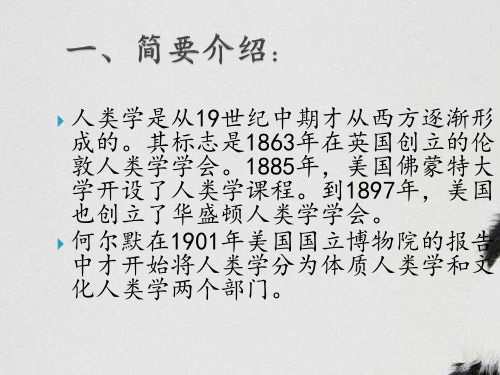 一、简要介绍：
人类学是从19世纪中期才从西方逐渐形
成的。其标志是1863年在英国创立的伦
敦人类学学会。1885年，美国佛蒙特大
学开设了人类学课程。到1897年，美国
也创立了华盛顿人类学学会。
何尔默在1901年美国国立博物院的报告
中才开始将人类学分为体质人类学和文
化人类学两个部门。